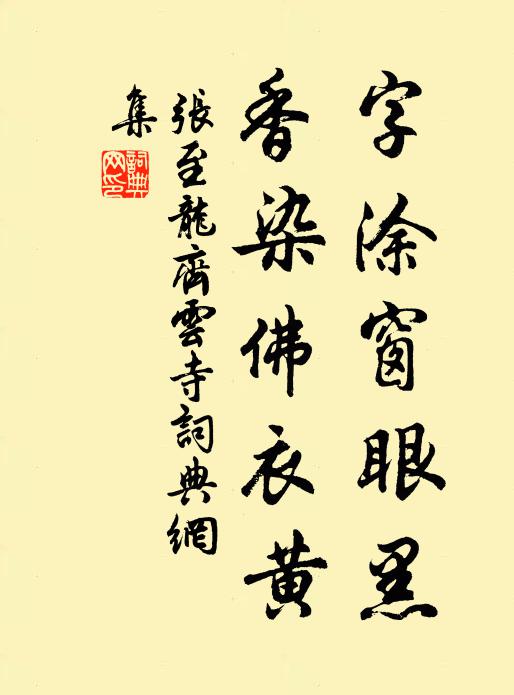 字涂窗眼黑
香染佛衣黄
張至龍齊雲寺詞典網
集
詞典
网印